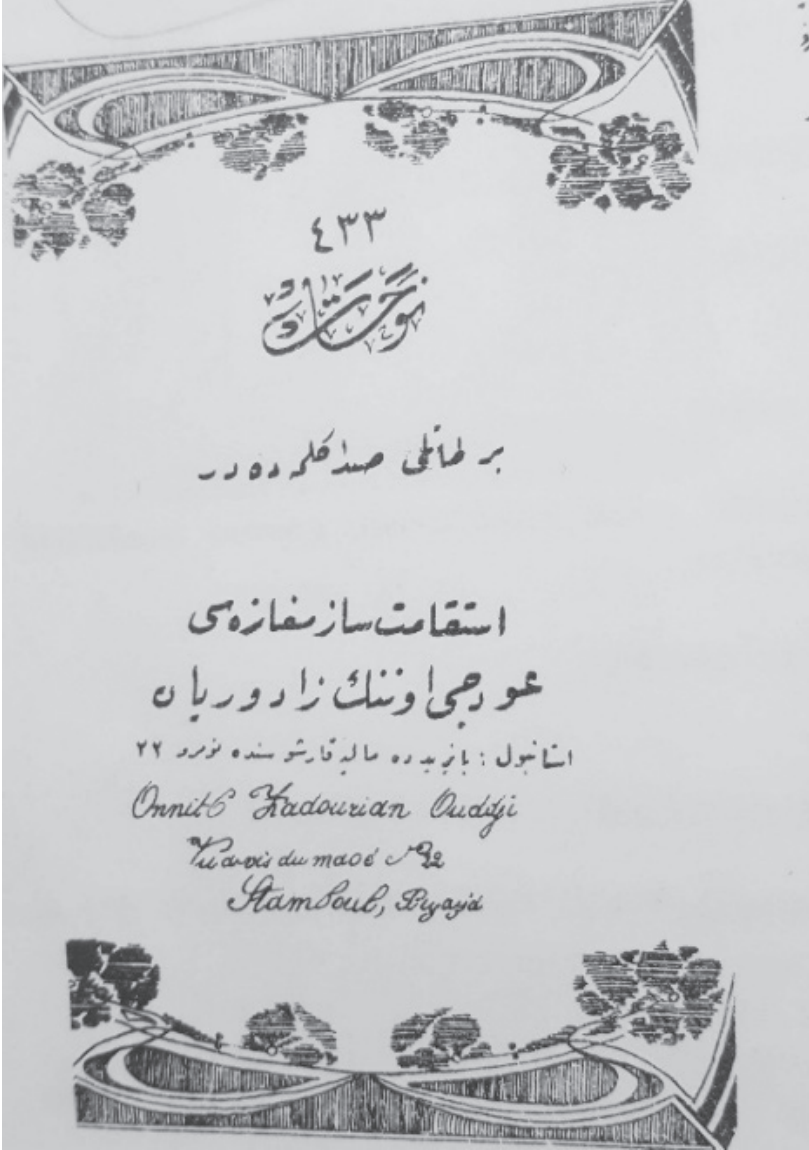 ٤٣٣
نوحەتك
بر طاتلى صدا كلمه ده در
استقامت ساز مغازه سى
عودجى اوننك زادوريان
استانبول : بايزيدده ماليه قارشوسنده نومرو ٢٢
Onnik Zadourian Ouddji
Vis-à-vis du № 22
Stamboul, Bayazid